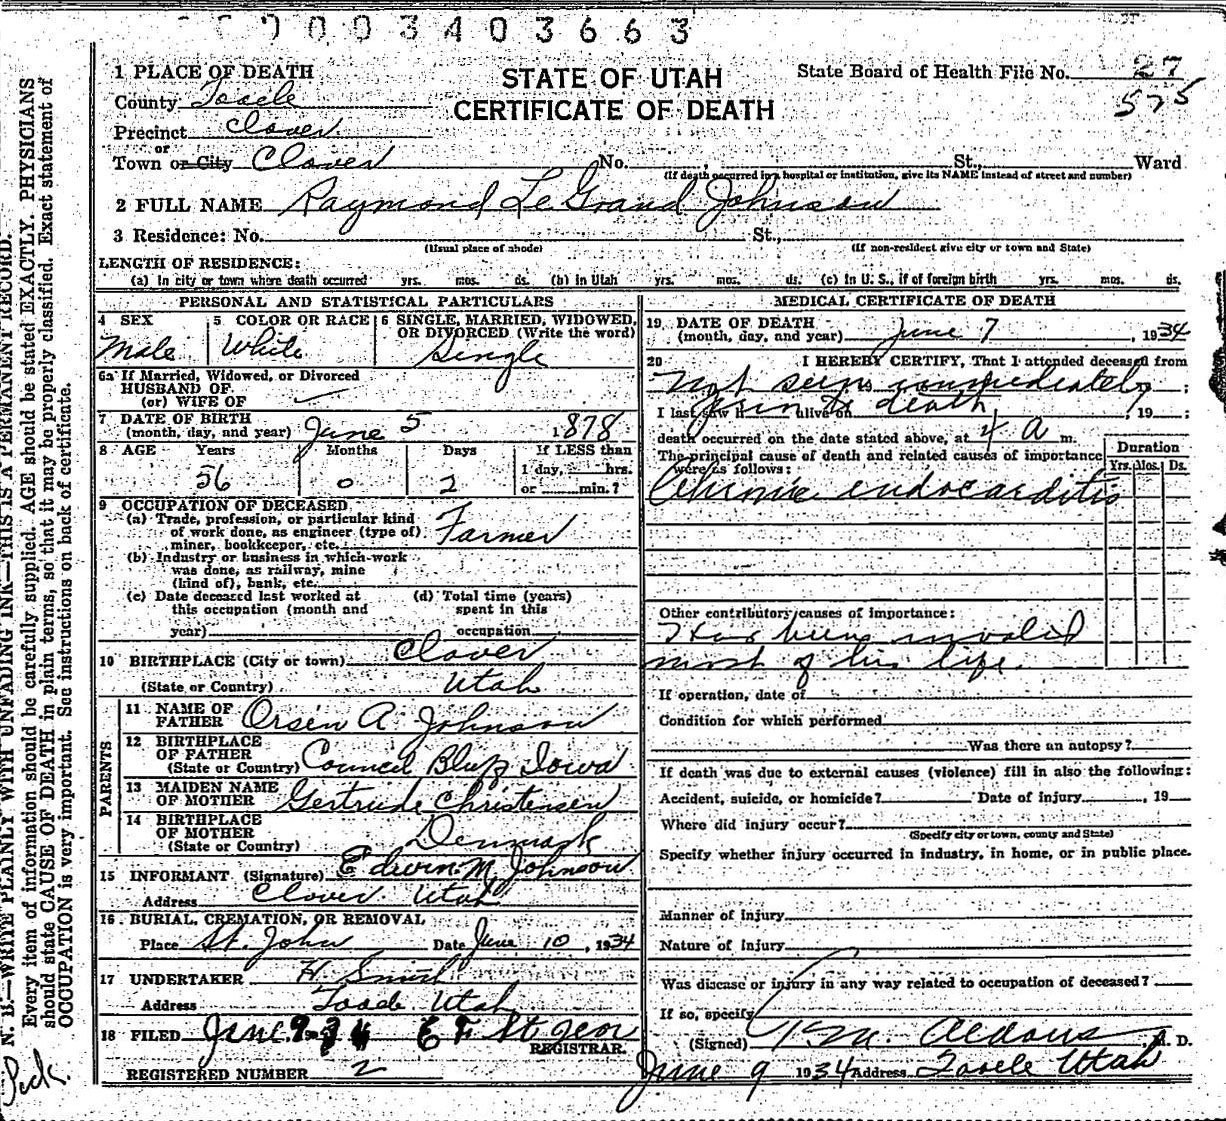 0003403663
1 PLACE OF DEATH
STATE OF UTAH
CERTIFICATE OF DEATH
State Board of Health File No. 27
575
County Tooele
Precinct Clover
or
Town or City Clover No. , St., Ward
(If death occurred in a hospital or institution, give its NAME instead of street and number)
2 FULL NAME Raymond Le Grand Johnson
3 Residence: No. St.,
(Usual place of abode) (If non-resident give city or town and State)
LENGTH OF RESIDENCE:
(a) In city or town where death occurred yrs. mos. ds. (b) In Utah yrs. mos. ds. (c) In U. S., if of foreign birth yrs. mos. ds.
PERSONAL AND STATISTICAL PARTICULARS
4 SEX 5 COLOR OR RACE 6 SINGLE, MARRIED, WIDOWED,
OR DIVORCED (Write the word)
Male White Single
6a If Married, Widowed, or Divorced
HUSBAND OF
(or) WIFE OF
7 DATE OF BIRTH
(month, day, and year) June 5 1878
8 AGE Years Months Days If LESS than
1 day, hrs.
56 0 2 or min.?
9 OCCUPATION OF DECEASED
(a) Trade, profession, or particular kind
of work done, as engineer (type of)
miner, bookkeeper, etc. Farmer
(b) Industry or business in which work
was done, as railway, mine
(kind of), bank, etc.
(c) Date deceased last worked at
this occupation (month and
year)
(d) Total time (years)
spent in this
occupation
10 BIRTHPLACE (City or town) Clover
(State or Country) Utah
PARENTS
11 NAME OF
FATHER Orsen A. Johnson
12 BIRTHPLACE
OF FATHER
(State or Country) Council Blufs Iowa
13 MAIDEN NAME
OF MOTHER Gertrude Christensen
14 BIRTHPLACE
OF MOTHER
(State or Country) Denmark
15 INFORMANT (Signature) Edwin M. Johnson
Address Clover Utah
16 BURIAL, CREMATION, OR REMOVAL
Place St. John Date June 10, 1934
17 UNDERTAKER H. Smith
Address Tooele Utah
18 FILED June 9
REGISTRAR.
REGISTERED NUMBER 2
MEDICAL CERTIFICATE OF DEATH
19 DATE OF DEATH
(month, day, and year) June 7, 1934
20 I HEREBY CERTIFY, That I attended deceased from
Not seen immediately ;
I last saw h alive on , 19 ;
prior to death
death occurred on the date stated above, at 4 A m.
The principal cause of death and related causes of importance
were as follows:
Duration
Yrs. Mos. Ds.
Chronic endocarditis
Other contributory causes of importance:
Has been invalid
most of his life.
If operation, date of
Condition for which performed
Was there an autopsy?
If death was due to external causes (violence) fill in also the following:
Accident, suicide, or homicide? Date of injury , 19
Where did injury occur?
(Specify city or town, county and State)
Specify whether injury occurred in industry, in home, or in public place.
Manner of injury
Nature of injury
Was disease or injury in any way related to occupation of deceased?
If so, specify
(Signed) M. D.
June 9 1934 Address Tooele Utah
N. B.—WRITE PLAINLY WITH UNFADING INK—THIS IS A PERMANENT RECORD.
Every item of information should be carefully supplied. AGE should be stated EXACTLY. PHYSICIANS
should state CAUSE OF DEATH in plain terms, so that it may be properly classified. Exact statement of
OCCUPATION is very important. See instructions on back of certificate.